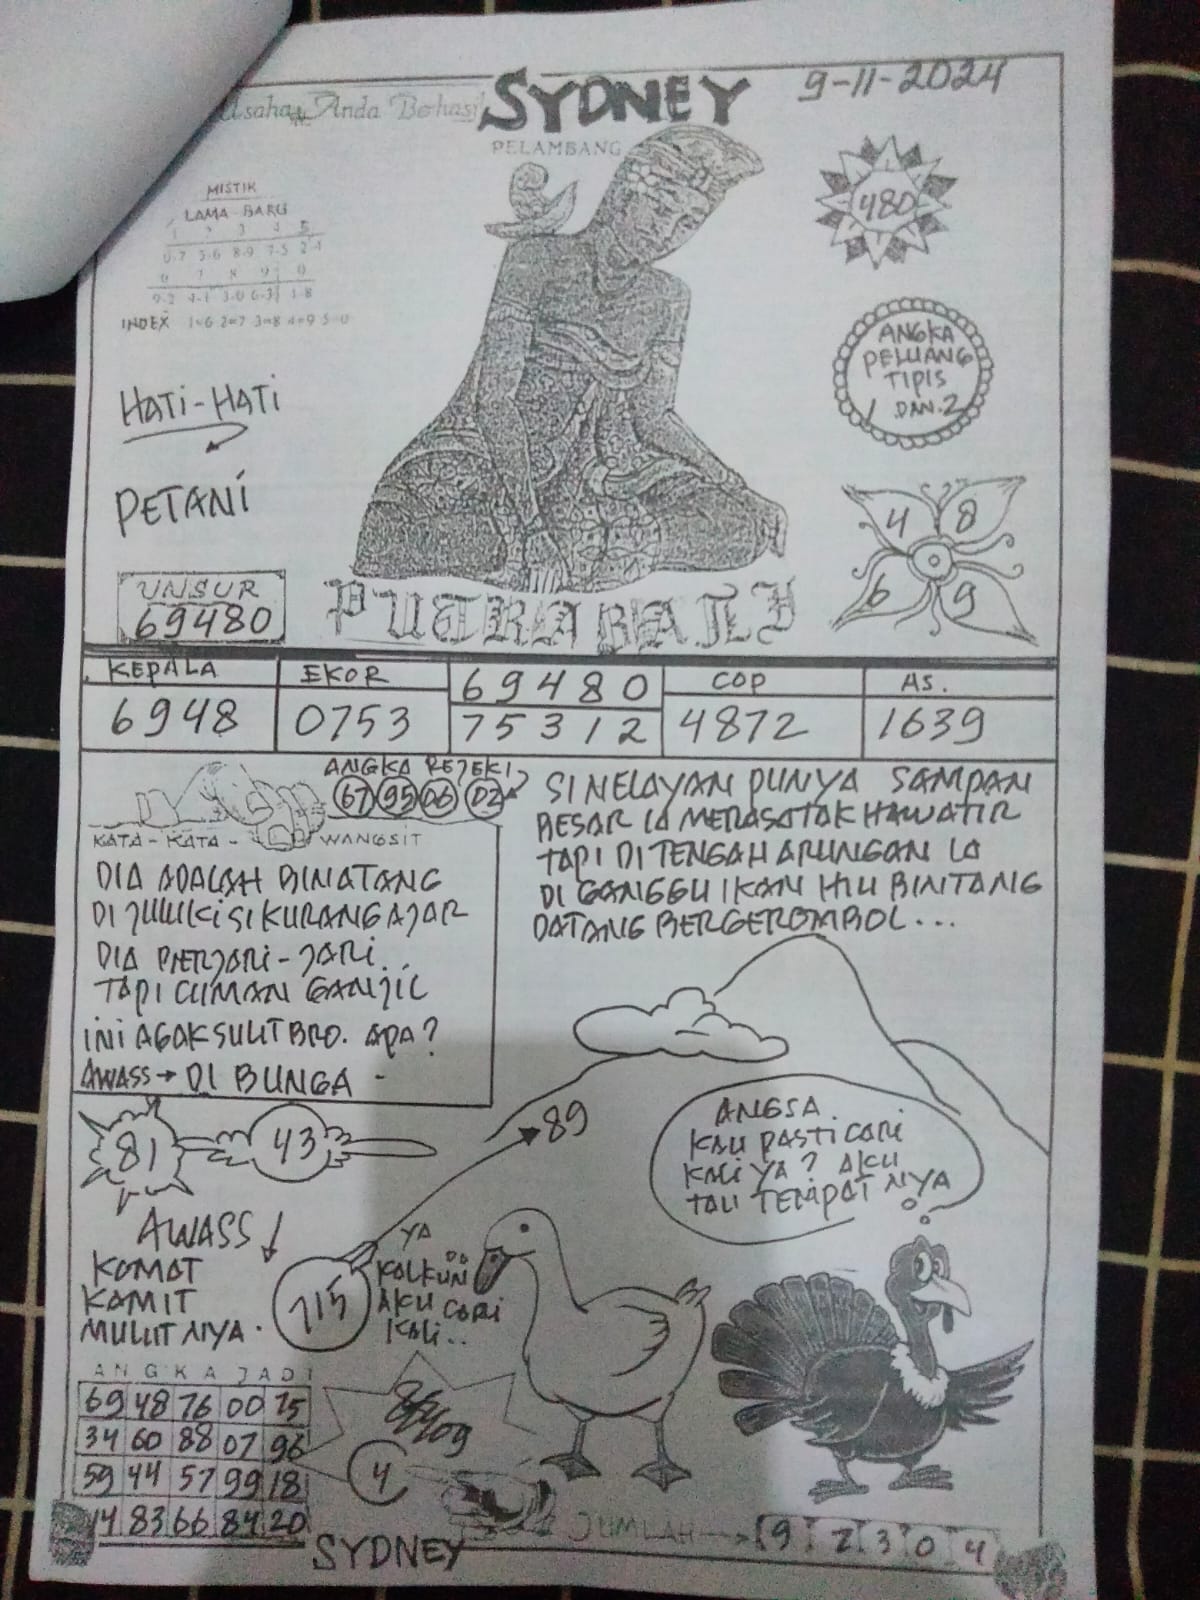 Usaha Anda Berhasil
SYDNEY
9-11-2024
PELAMBANG
MISTIK
LAMA - BARU
INDEX 1=6 2=7 3=8 4=9 5=0
480
ANGKA
PELUANG
TIPIS
1 DAN.2
HATI-HATI
PETANI
4 8
6 9
UNSUR
69480
PUTRA BALI
KEPALA
6948
EKOR
0753
69480
75312
COP
4872
AS.
1639
ANGKA REJEKI
67 95 06 02
KATA - KATA - WANGSIT
DIA ADALAH BINATANG
DI JULUKI SI KURANG AJAR
DIA BERJARI-JARI..
TAPI CUMAN GANJIL
INI AGAK SULIT BRO. APA?
AWASS → DI BUNGA -
SI NELAYAN PUNYA SAMPAN
BESAR IA MERASA TAK HAWATIR
TAPI DI TENGAH ARUNGAN IA
DI GANGGU IKAN HIU BINTANG
DATANG BERGEROMBOL...
81
43
89
ANGSA.
KAU PASTI CARI
KALI YA? AKU
TAU TEMPAT NYA
AWASS ↓
KOMAT
KAMIT
MULUT NYA.
715
YA
KALKUN
AKU CARI
KALI..
ANGKA JADI
69 48 76 00 75
34 60 88 07 96
59 44 57 99 18
14 83 66 84 20
4
SYDNEY
JUMLAH → 9 2 3 0 4